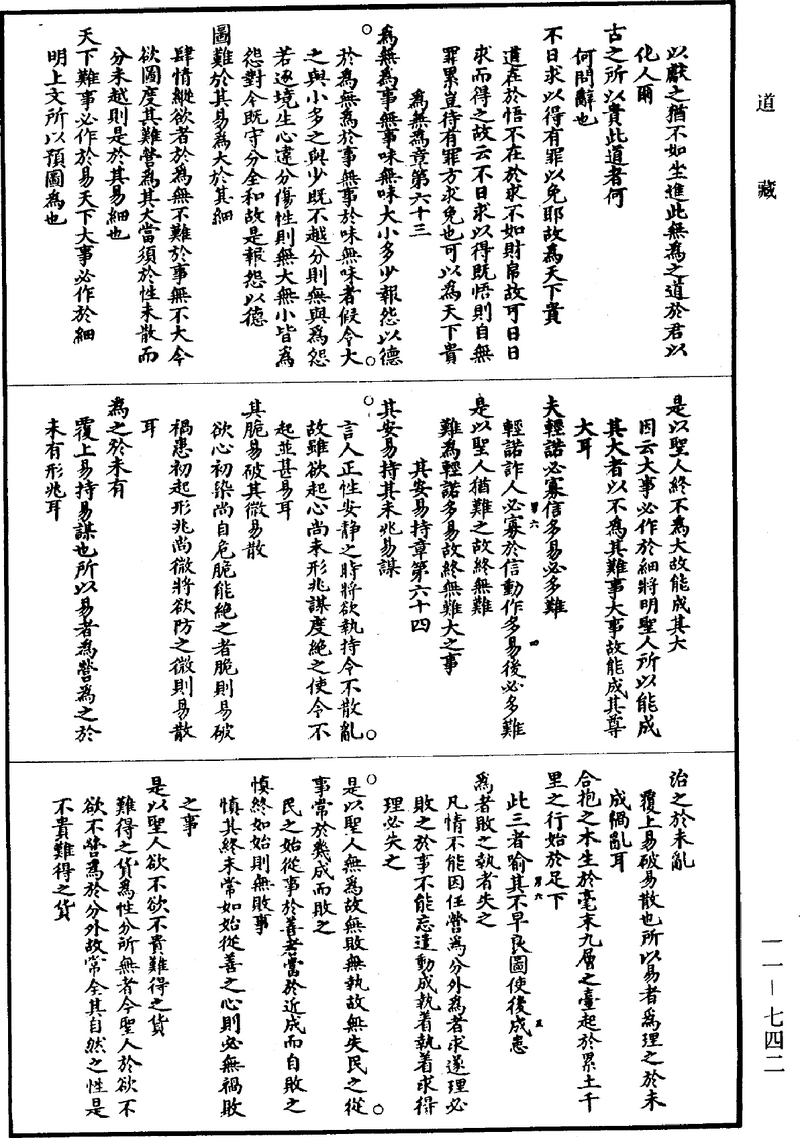 道藏
以獻之猶不如坐進此無為之道於君以
化人爾
古之所以貴此道者何
何問辭也
不日求以得有罪以免耶故為天下貴
道在於悟不在於求不如財帛故可日日
求而得之故云不日求以得既悟則自無
罪累豈待有罪方求免也可以為天下貴
為無為章第六十三
為無為事無事味無味大小多少報怨以德
於為無為於事無事於味無味者假令大
之與小多之與少既不越分則無與為怨
若逐境生心違分傷性則無大無小皆為
怨對今既守分全和故是報怨以德
圖難於其易為大於其細
肆情縱欲者於為無不難於事無不大今
欲圖度其難營為其大當須於性未散而
分未越則是於其易細也
天下難事必作於易天下大事必作於細
明上文所以預圖為也
是以聖人終不為大故能成其大
因云大事必作於細將明聖人所以能成
其大者以不為其難事大事故能成其尊
大耳
夫輕諾必寡信多易必多難
輕諾詐人必寡於信動作多易後必多難
是以聖人猶難之故終無難
難為輕諾多易故終無難大之事
其安易持章第六十四
其安易持其未兆易謀
言人正性安靜之時將欲執持令不散亂
故雖欲起心尚未形兆謀度絕之使令不
起並甚易耳
其脆易破其微易散
欲心初染尚自危脆能絕之者脆則易破
禍患初起形兆尚微將欲防之微則易散
耳
為之於未有
覆上易持易謀也所以易者為營為之於
未有形兆耳
治之於未亂
覆上易破易散也所以易者為理之於未
成禍亂耳
合抱之木生於毫末九層之臺起於累土千
里之行始於足下
此三者喻其不早良圖使後成患
為者敗之執者失之
凡情不能因任營為分外為者求遂理必
敗之於事不能忘遣動成執着執着求得
理必失之
是以聖人無為故無敗無執故無失民之從
事常於幾成而敗之
民之始從事於善者當於近成而自敗之
慎終如始則無敗事
慎其終末常如始從善之心則必無禍敗
之事
是以聖人欲不欲不貴難得之貨
難得之貨為性分所無者今聖人於欲不
欲不營為於分外故常全其自然之性是
不貴難得之貨
一一—七四二